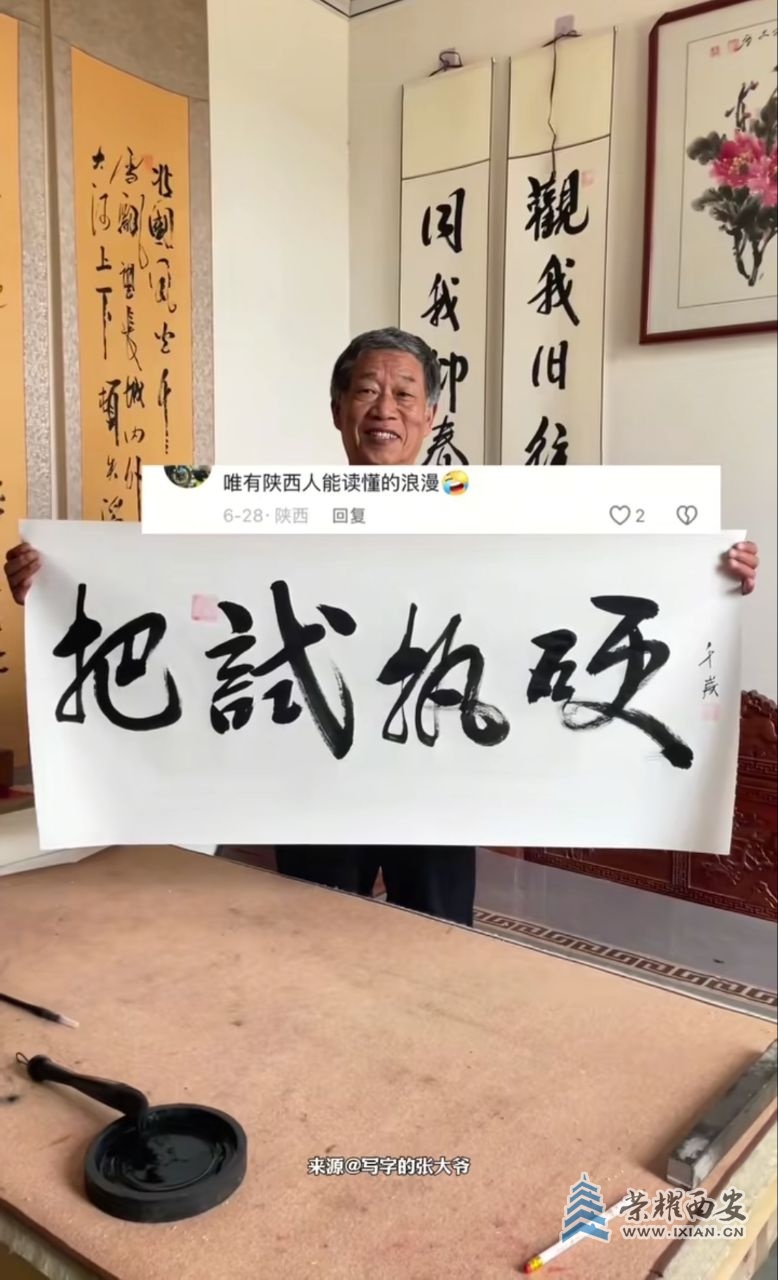 觀我旧往
同我仰春
北國風光千
雪飄望長城内外
大河上下頓失滔
唯有陕西人能读懂的浪漫🤣
6-28·陕西 回复 2
把試执硬
千歲
来源@写字的张大爷
荣耀西安
WWW.IXIAN.CN